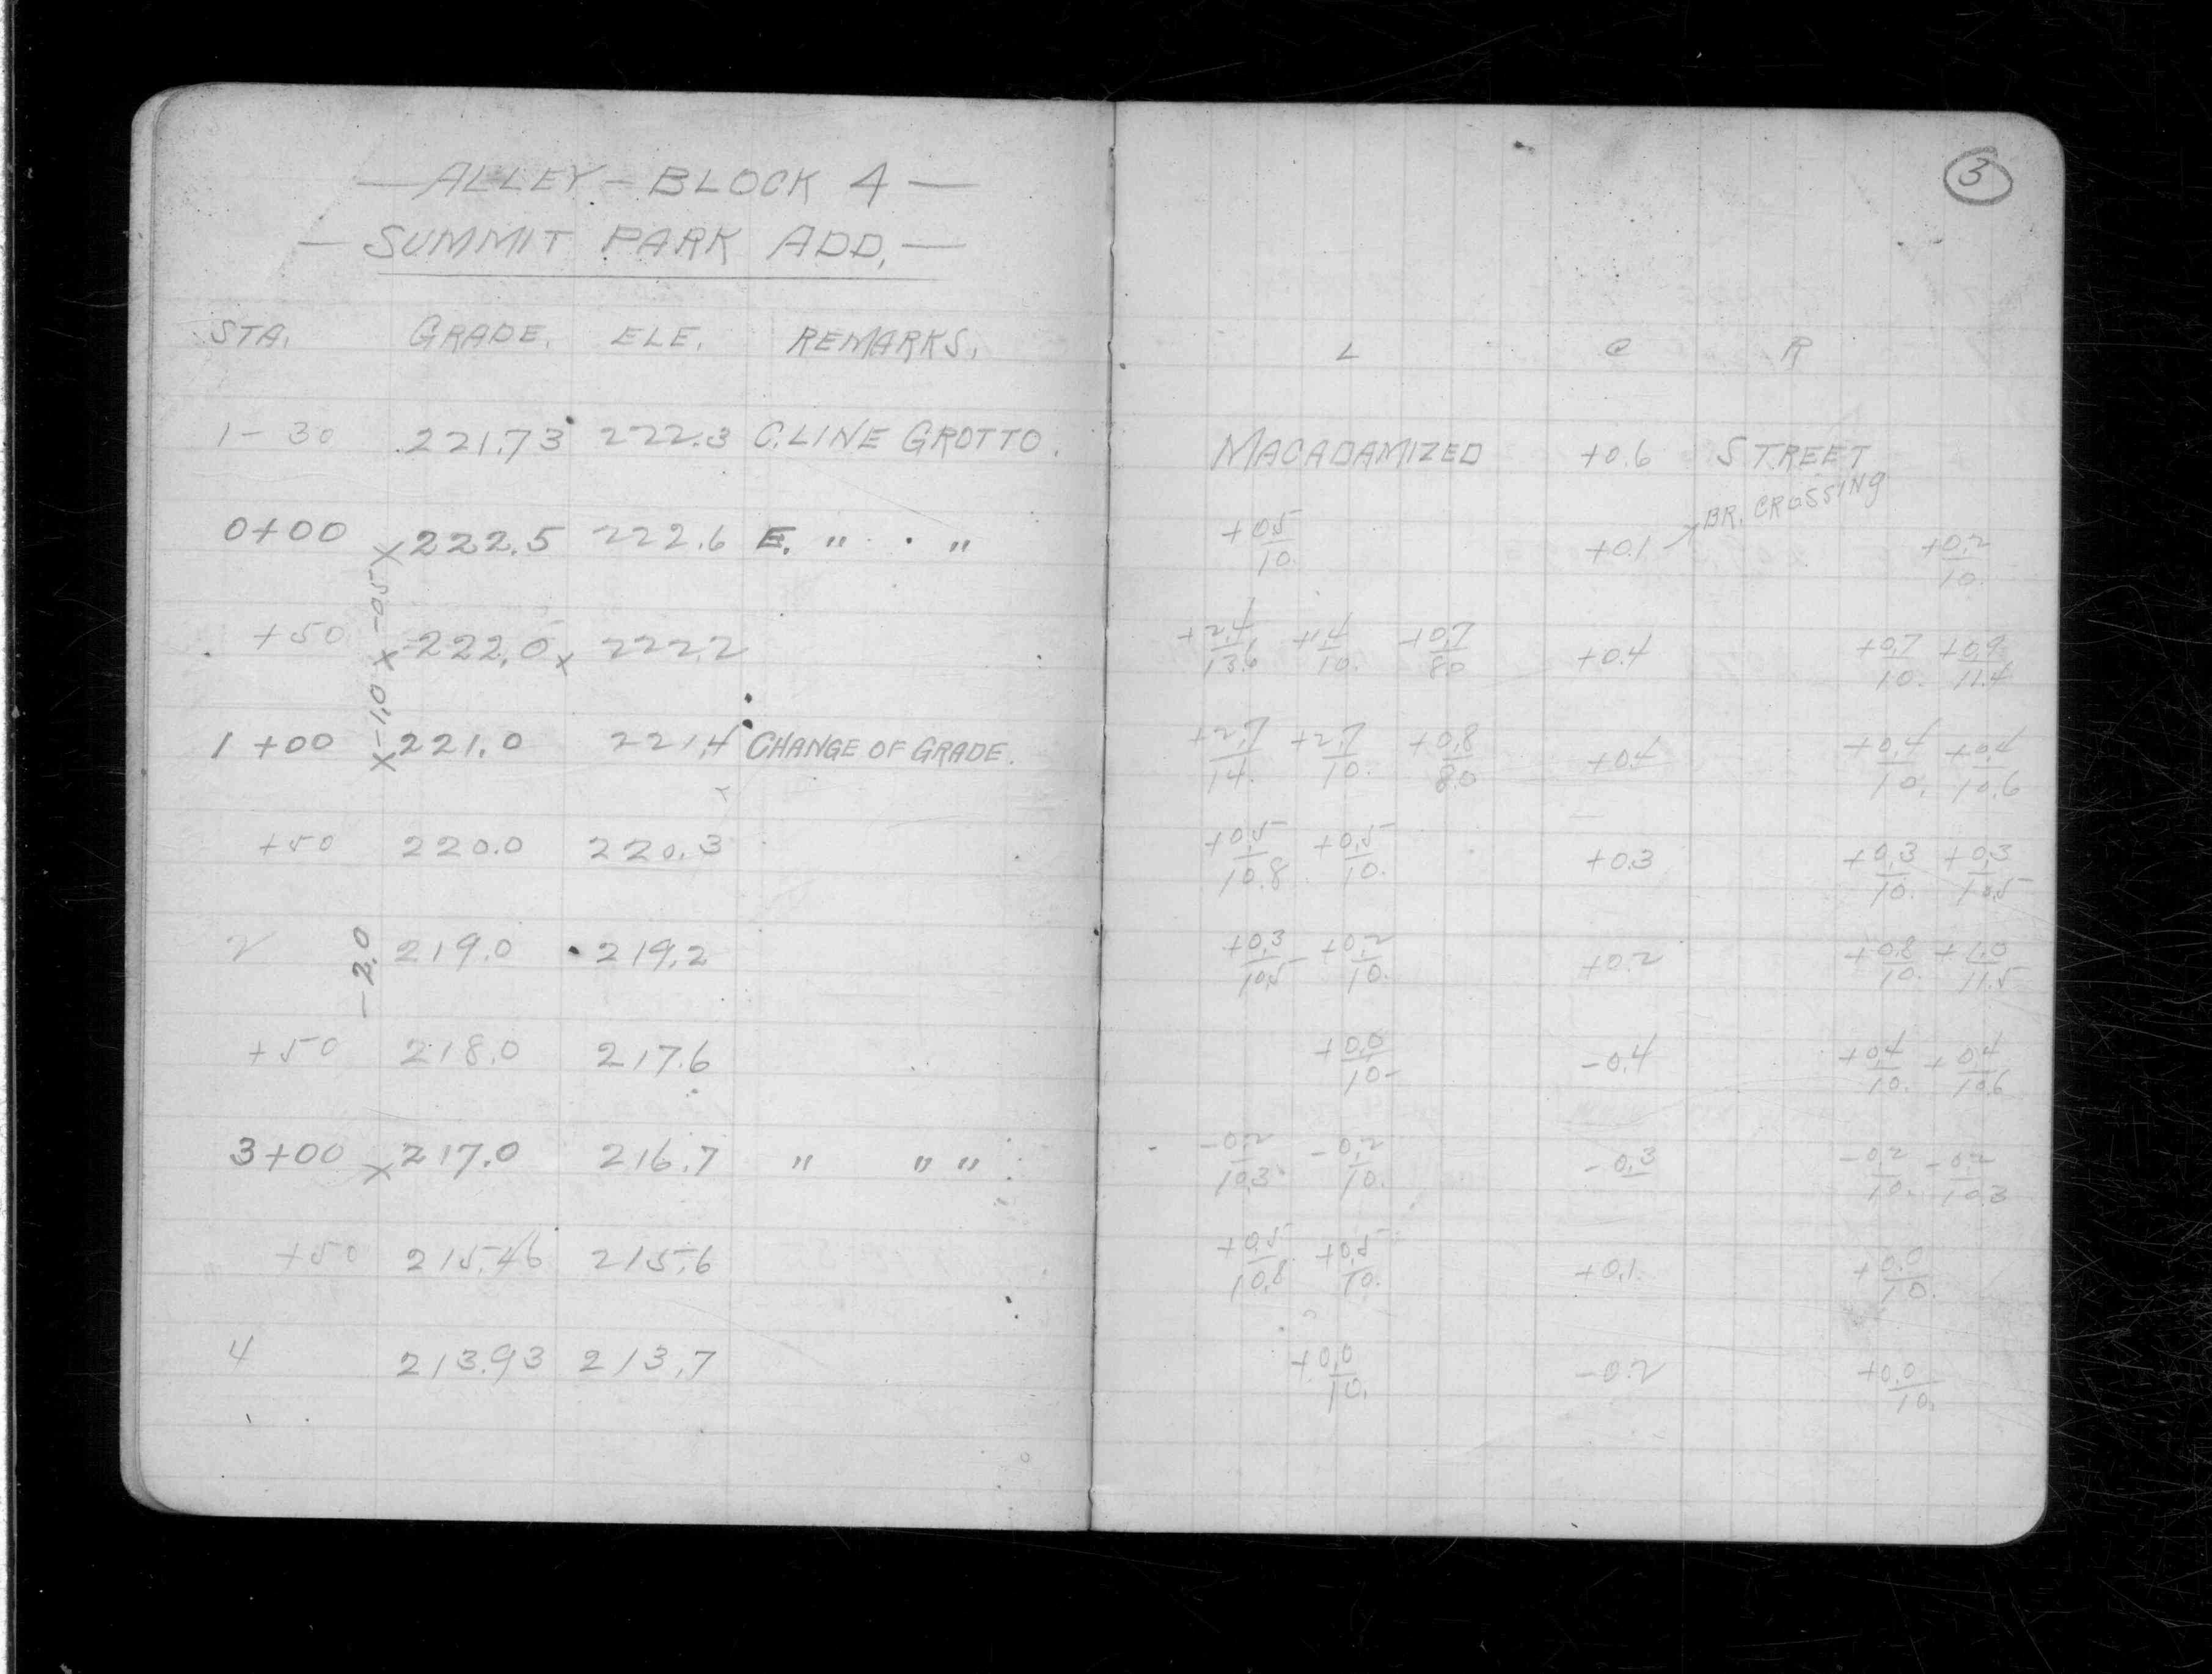 — ALLEY – BLOCK 4 —
— SUMMIT PARK ADD. —
STA. GRADE. ELE. REMARKS.
1 – 30 221.73 222.3 C. LINE GROTTO.
0+00 x 222.5 222.6 E. " "
-0.5
+50 x 222.0 x 222.2
-1.0
1+00 x 221.0 221.4 CHANGE OF GRADE.
+50 220.0 220.3
2 219.0 219.2
-2.0
+50 218.0 217.6
3+00 x 217.0 216.7 " " "
+50 215.46 215.6
4 213.93 213.7
3
L C R
MACADAMIZED +0.6 STREET
BR. CROSSING
+0.5/10. +0.1 +0.2/10.
+2.4/13.6 +1.4/10. +0.7/8.0 +0.4 +0.7/10. +0.9/11.4
+2.7/14. +2.7/10. +0.8/8.0 +0.4 +0.4/10. +0.4/10.6
+0.5/10.8 +0.5/10. +0.3 +0.3/10. +0.3/10.5
+0.3/10.5 +0.2/10. +0.2 +0.8/10. +1.0/11.5
+0.0/10. -0.4 +0.4/10. +0.4/10.6
-0.2/10.3 -0.2/10. -0.3 -0.2/10. -0.2/10.3
+0.5/10.8 +0.5/10. +0.1 +0.0/10.
+0.0/10. -0.2 +0.0/10.